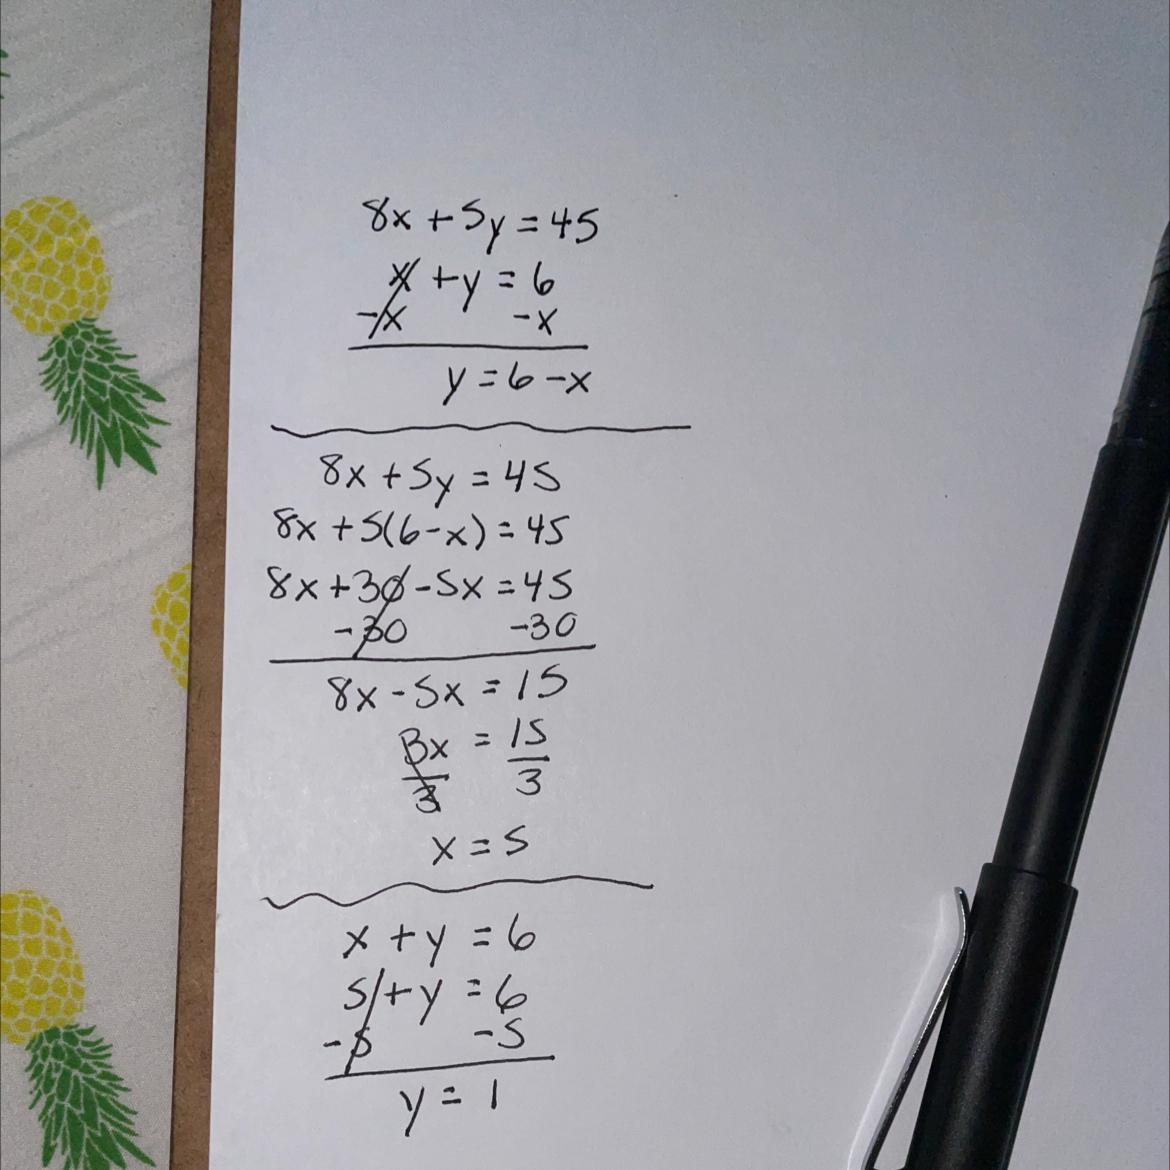 8x + 5y = 45
x + y = 6
-x -x
y = 6 - x
8x + 5y = 45
8x + 5(6 - x) = 45
8x + 30 - 5x = 45
-30 -30
8x - 5x = 15
3x = 15
3 3
x = 5
x + y = 6
5 + y = 6
-5 -5
y = 1